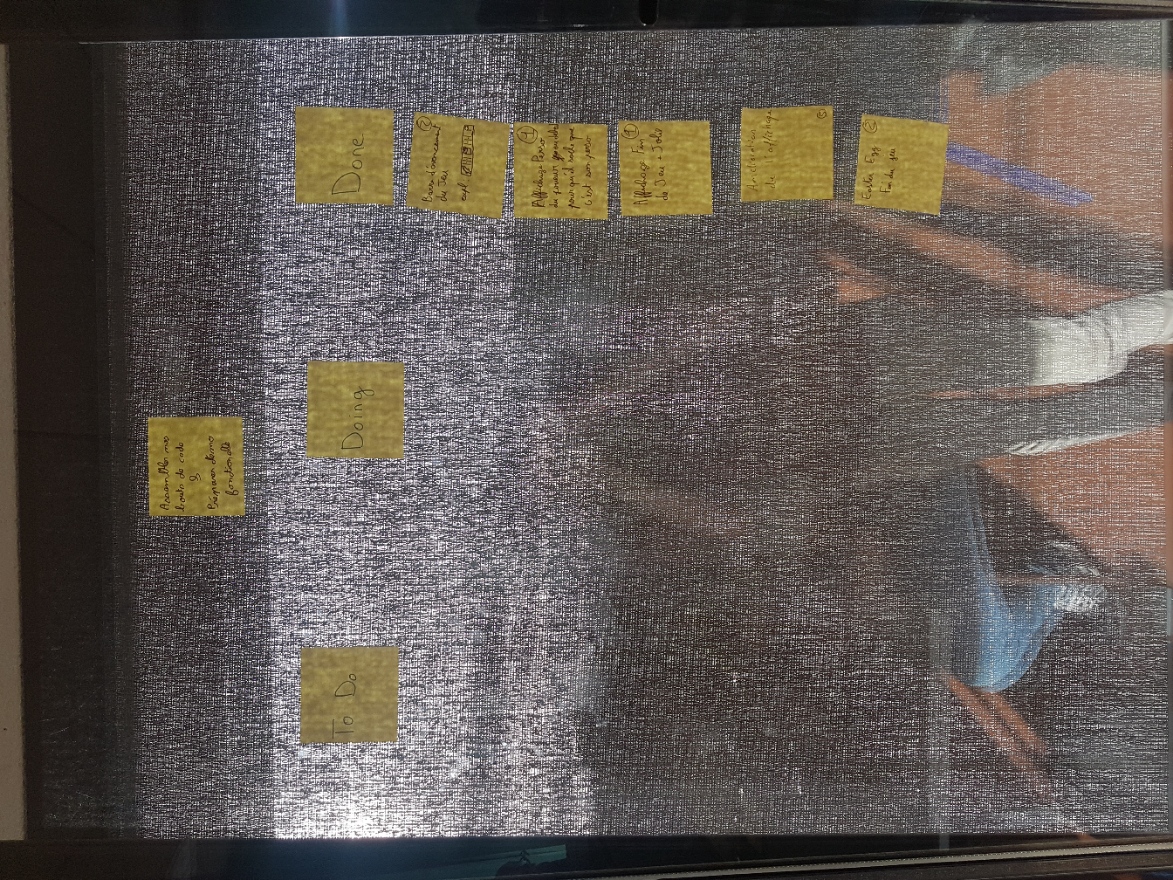 Assembler nos
bouts de code
&
Préparer démo
fonctionelle
To Do
Doing
Done
2
Barre d'avancement
du Jeu
expl
1
Affichage Perso
du joueur
pour qu'il sache que
c'est son perso
1
Affichage Fin
de Jeu + Jolie
Amélioration
de l'affichage
Easter Egg
Fin du jeu